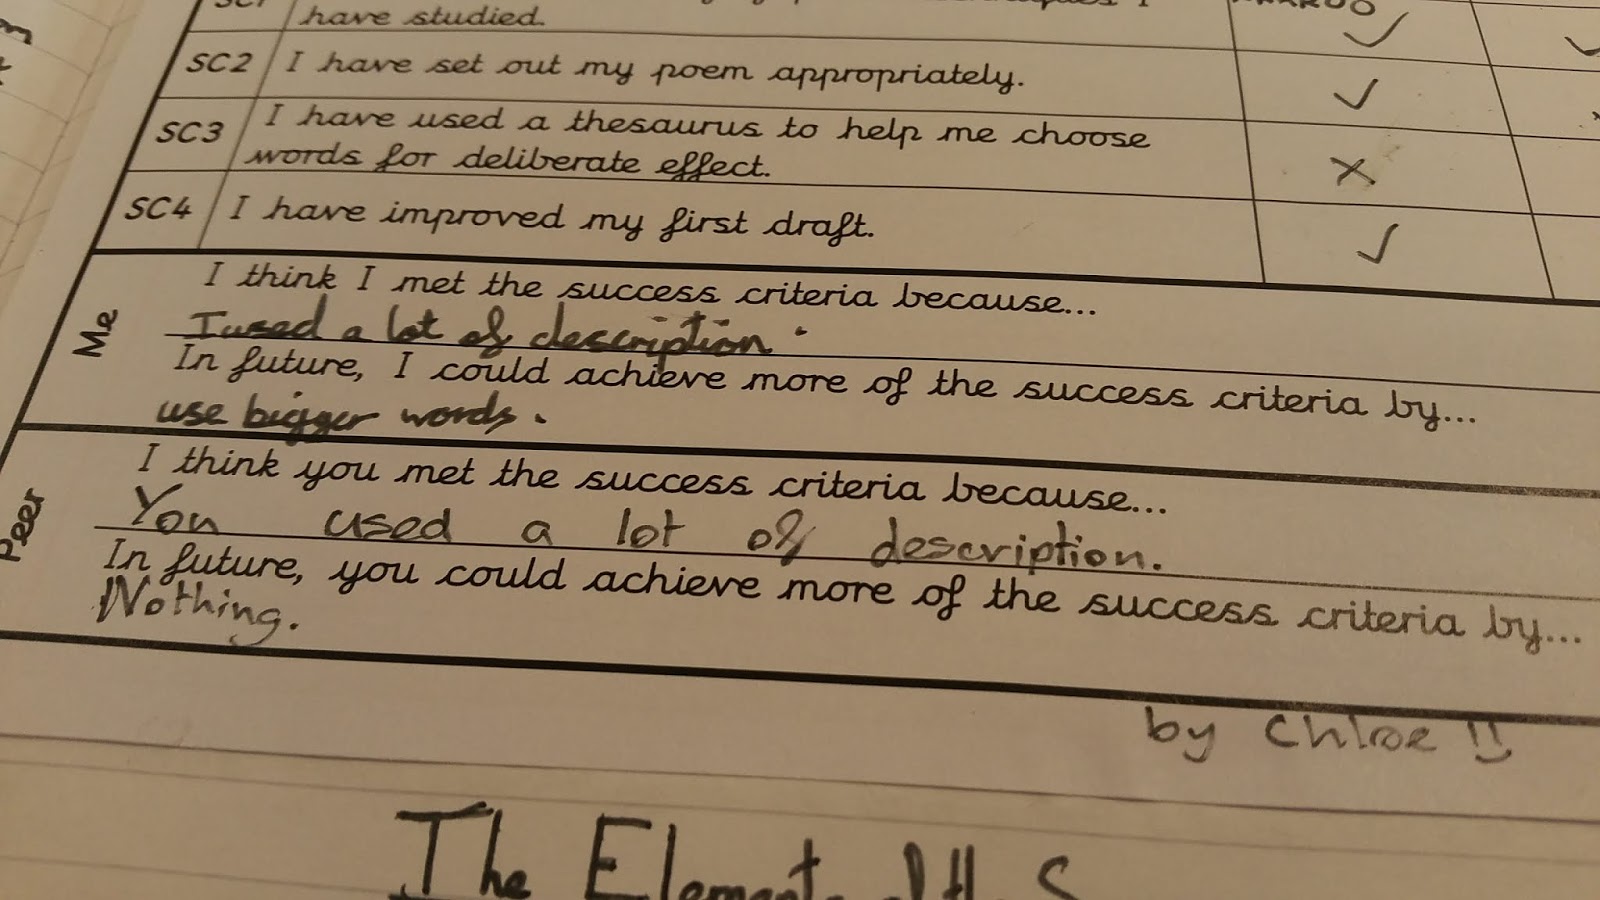 SC1
have studied.
SC2 I have set out my poem appropriately.
SC3 I have used a thesaurus to help me choose
words for deliberate effect.
SC4 I have improved my first draft.
Me
I think I met the success criteria because...
I used a lot of description.
In future, I could achieve more of the success criteria by...
use bigger words.
Peer
I think you met the success criteria because...
You used a lot of description.
In future, you could achieve more of the success criteria by...
Nothing.
by Chloe !!
The Elements of the S